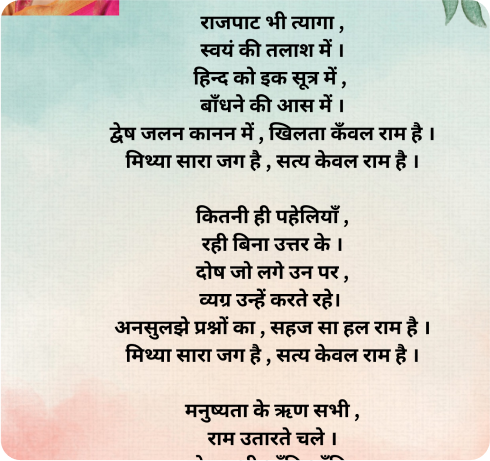 राजपाट भी त्यागा ,
स्वयं की तलाश में ।
हिन्द को इक सूत्र में ,
बाँधने की आस में ।
द्वेष जलन कानन में , खिलता कँवल राम है ।
मिथ्या सारा जग है , सत्य केवल राम है ।
कितनी ही पहेलियाँ ,
रही बिना उत्तर के ।
दोष जो लगे उन पर ,
व्यग्र उन्हें करते रहे।
अनसुलझे प्रश्नों का , सहज सा हल राम है ।
मिथ्या सारा जग है , सत्य केवल राम है ।
मनुष्यता के ऋण सभी ,
राम उतारते चले ।